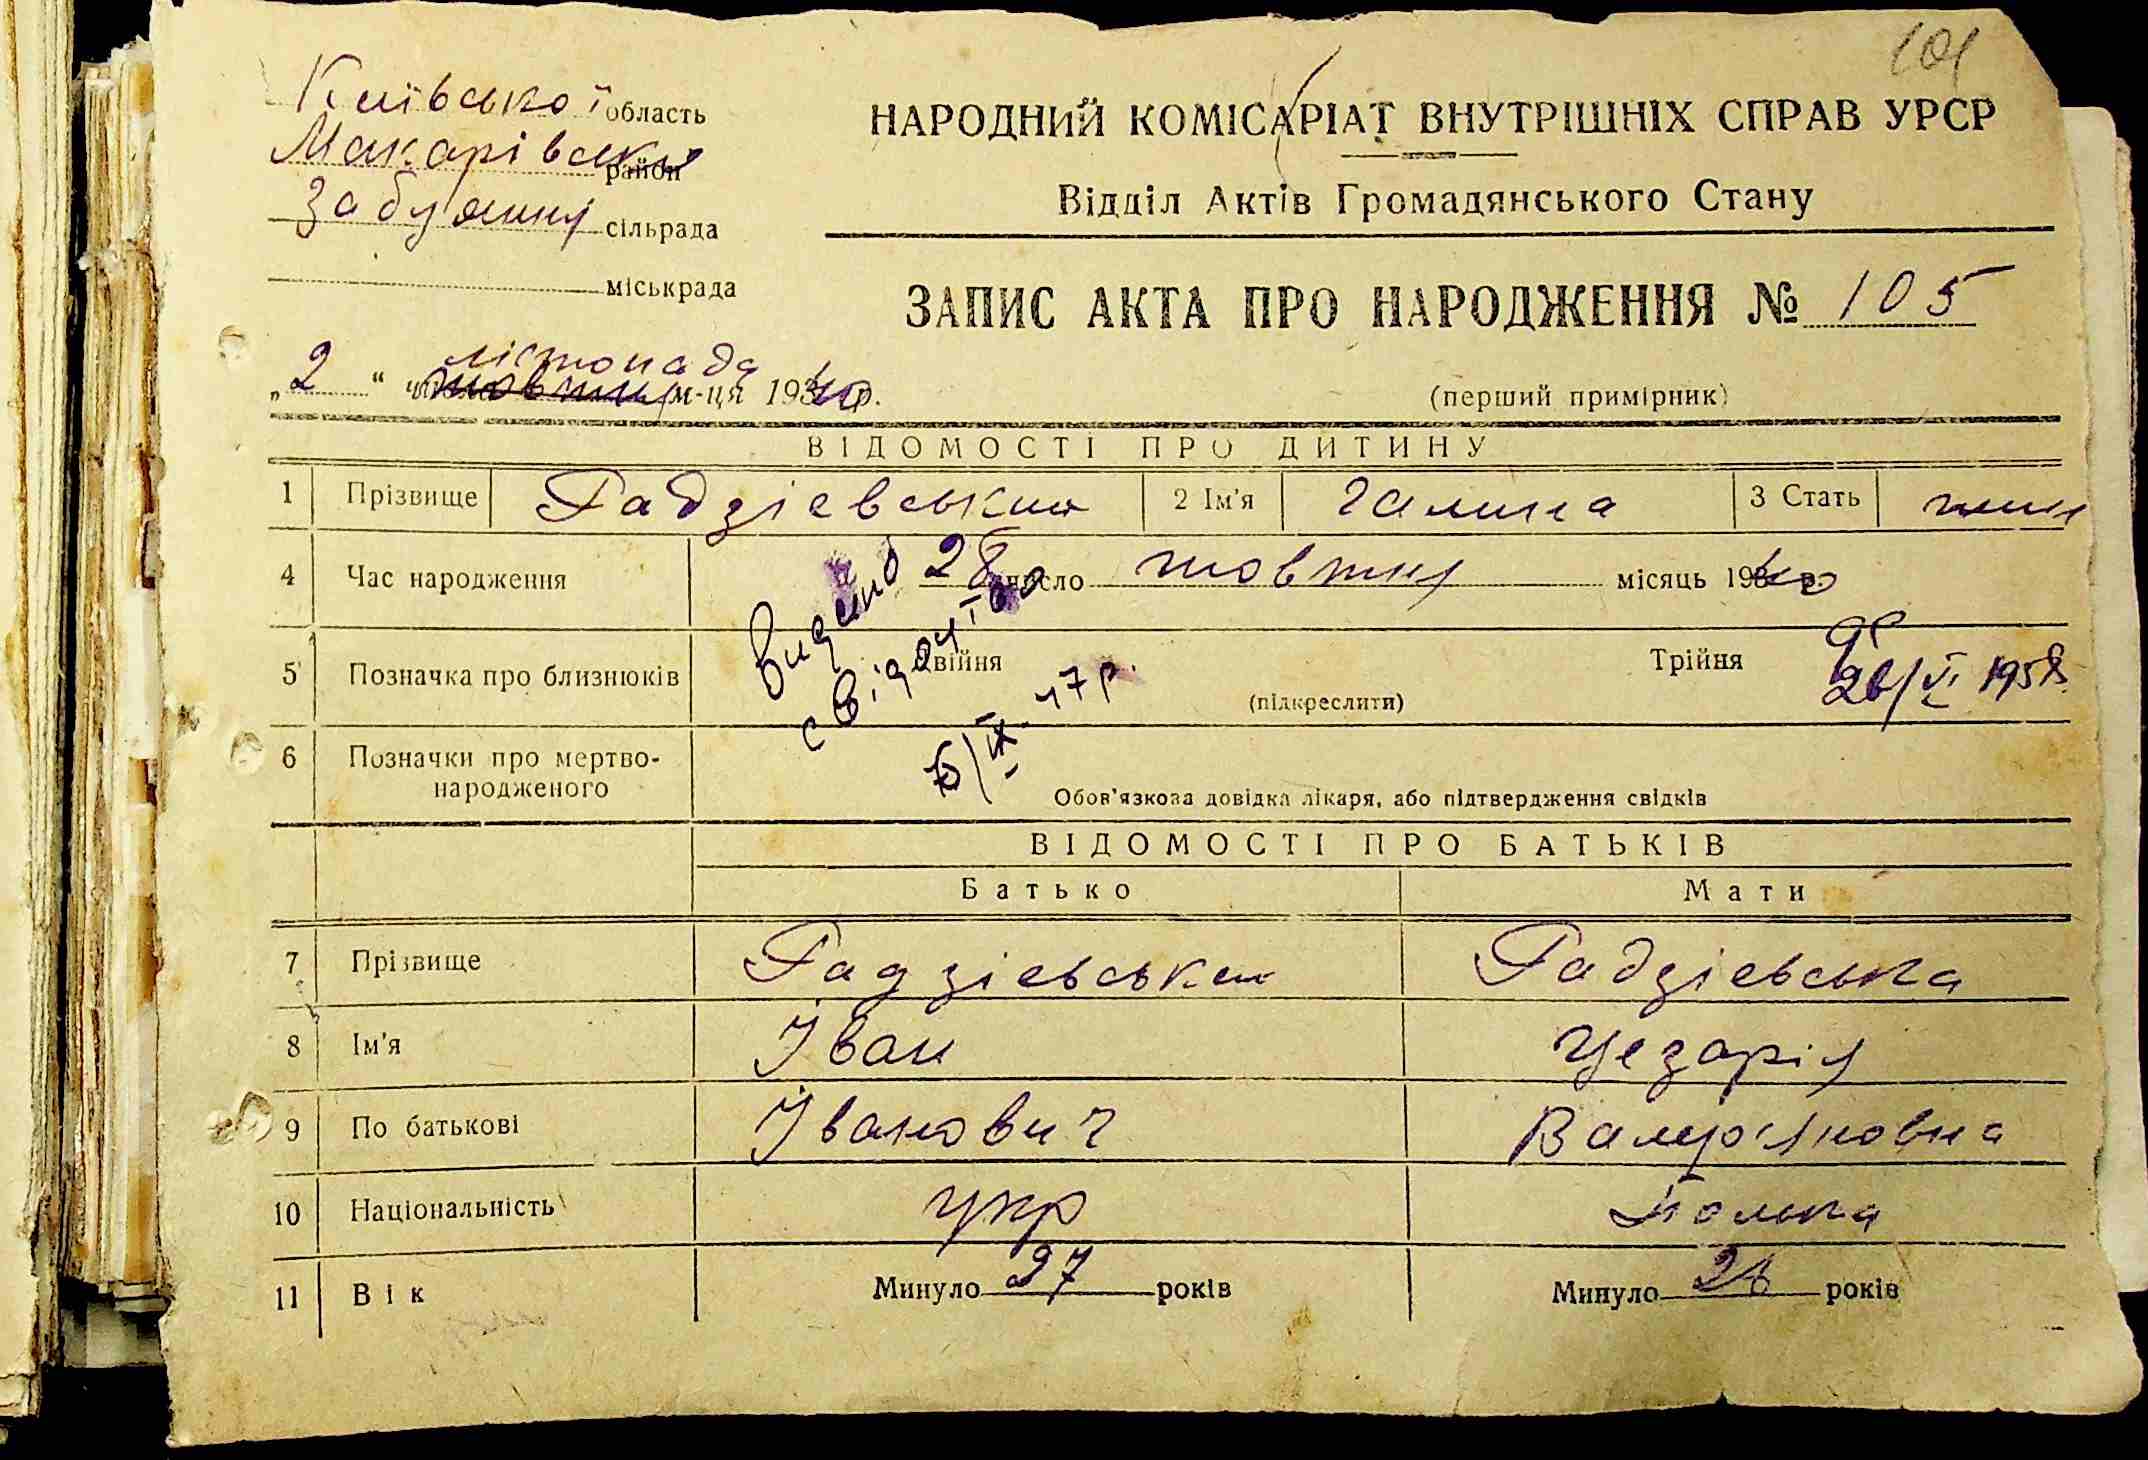 101
Київської область
Макарівськ район
Забуяння сільрада
міськрада
НАРОДНИЙ КОМІСАРІАТ ВНУТРІШНІХ СПРАВ УРСР
Відділ Актів Громадянського Стану
ЗАПИС АКТА ПРО НАРОДЖЕННЯ № 105
листопада
„2“ жовтня м-ця 1940р.
(перший примірник)
ВІДОМОСТІ ПРО ДИТИНУ
1 Прізвище Гадзієвська 2 Ім'я Галина 3 Стать жін
4 Час народження 28 число жовтня місяць 1940
5 Позначка про близнюків Двійня Трійня
(підкреслити)
Видано свідоцтво
6/IX 47 р.
26/VI 1958
6 Позначки про мертво-
народженого
Обов'язкова довідка лікаря, або підтвердження свідків
ВІДОМОСТІ ПРО БАТЬКІВ
Батько Мати
7 Прізвище Гадзієвськи Гадзієвська
8 Ім'я Іван Цезарія
9 По батькові Іванович Валер'яновна
10 Національність укр Полька
11 Вік Минуло 27 років Минуло років